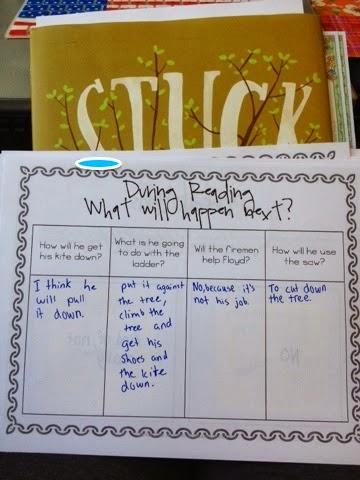 STUCK
During Reading
What will happen next?
How will he get
his kite down?
What is he going
to do with the
ladder?
Will the firemen
help Floyd?
How will he use
the saw?
I think he
will pull
it down.
put it against
the tree,
climb the
tree and
get his
shoes and
the kite
down.
No, because it's
not his job.
To cut down
the tree.